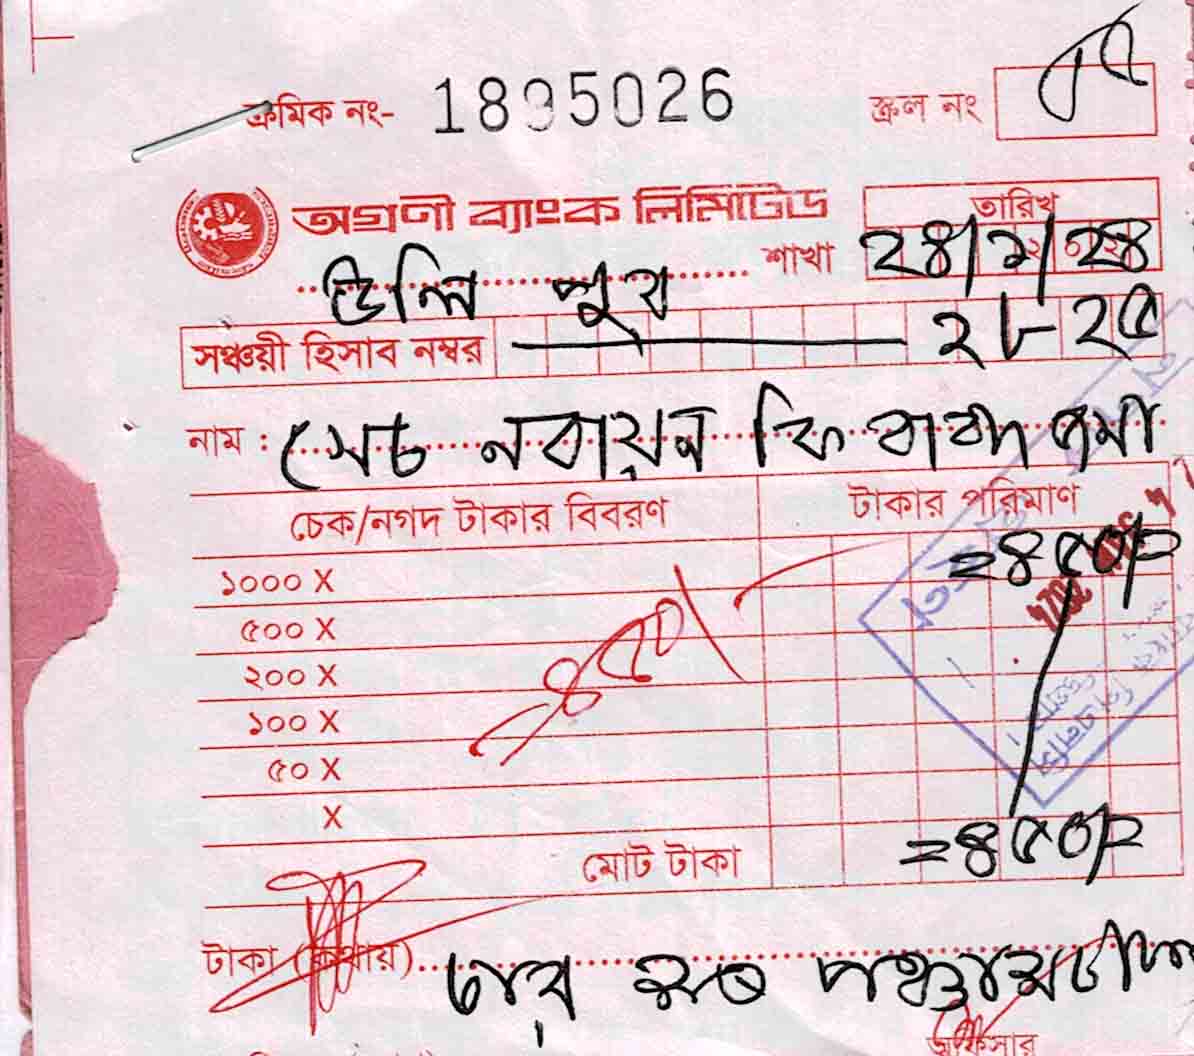 ক্রমিক নং- 1895026
স্ক্রল নং
অগ্রণী ব্যাংক লিমিটেড
তারিখ
উলিপুর শাখা ২৪/১/২৪
সঞ্চয়ী হিসাব নম্বর ২৮২৫
নাম : সেচ নবায়ন ফি বাবদ জমা
চেক/নগদ টাকার বিবরণ টাকার পরিমাণ
=৪৫০/=
১০০০ X
৫০০ X
৪৫০/
২০০ X
১০০ X
৫০ X
X
মোট টাকা =৪৫০/=
টাকা (কথায়) চার শত পঞ্চাশ টাকা
অফিসার